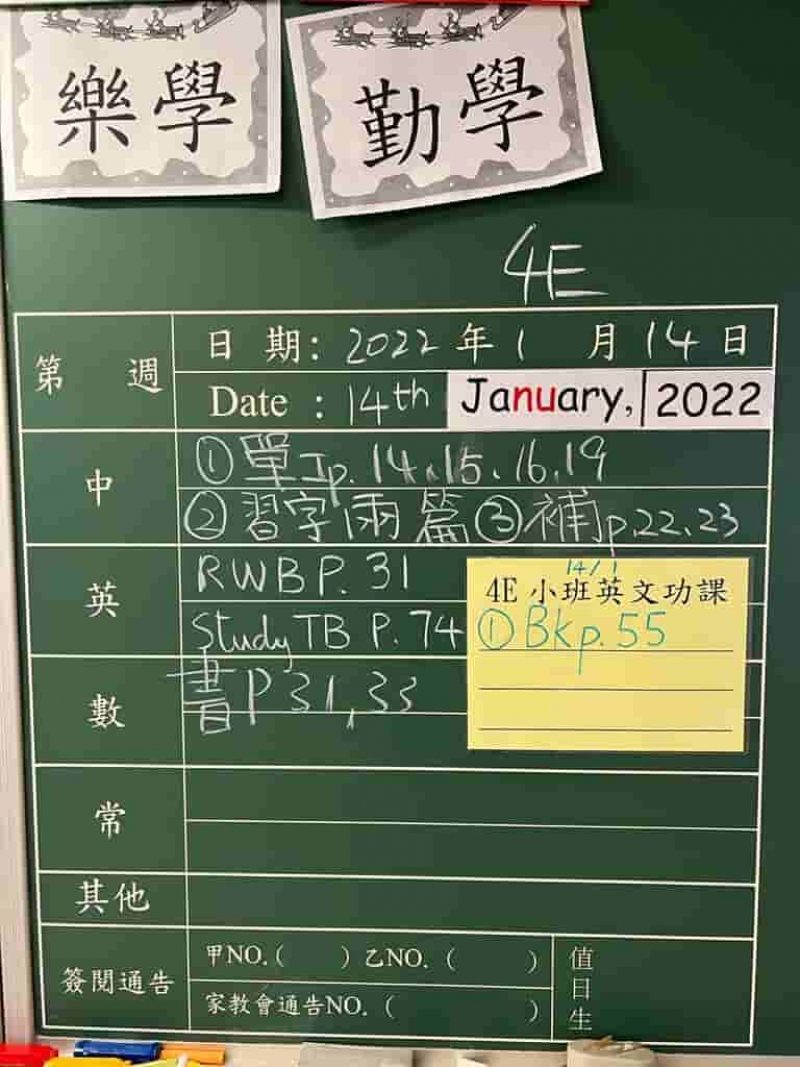 樂學
勤學
4E
第 週
日 期: 2022 年 1 月 14 日
Date : 14th January, 2022
中
① 單工p. 14、15、16、19
② 習字雨篇 ③ 補p.22、23
英
RWB P. 31
Study TB P. 74
14/1
4E 小班英文功課
① Bk p. 55
數
書P 31, 33
常
其他
簽閱通告
甲NO. ( ) 乙NO. ( )
家教會通告NO. ( )
值日生